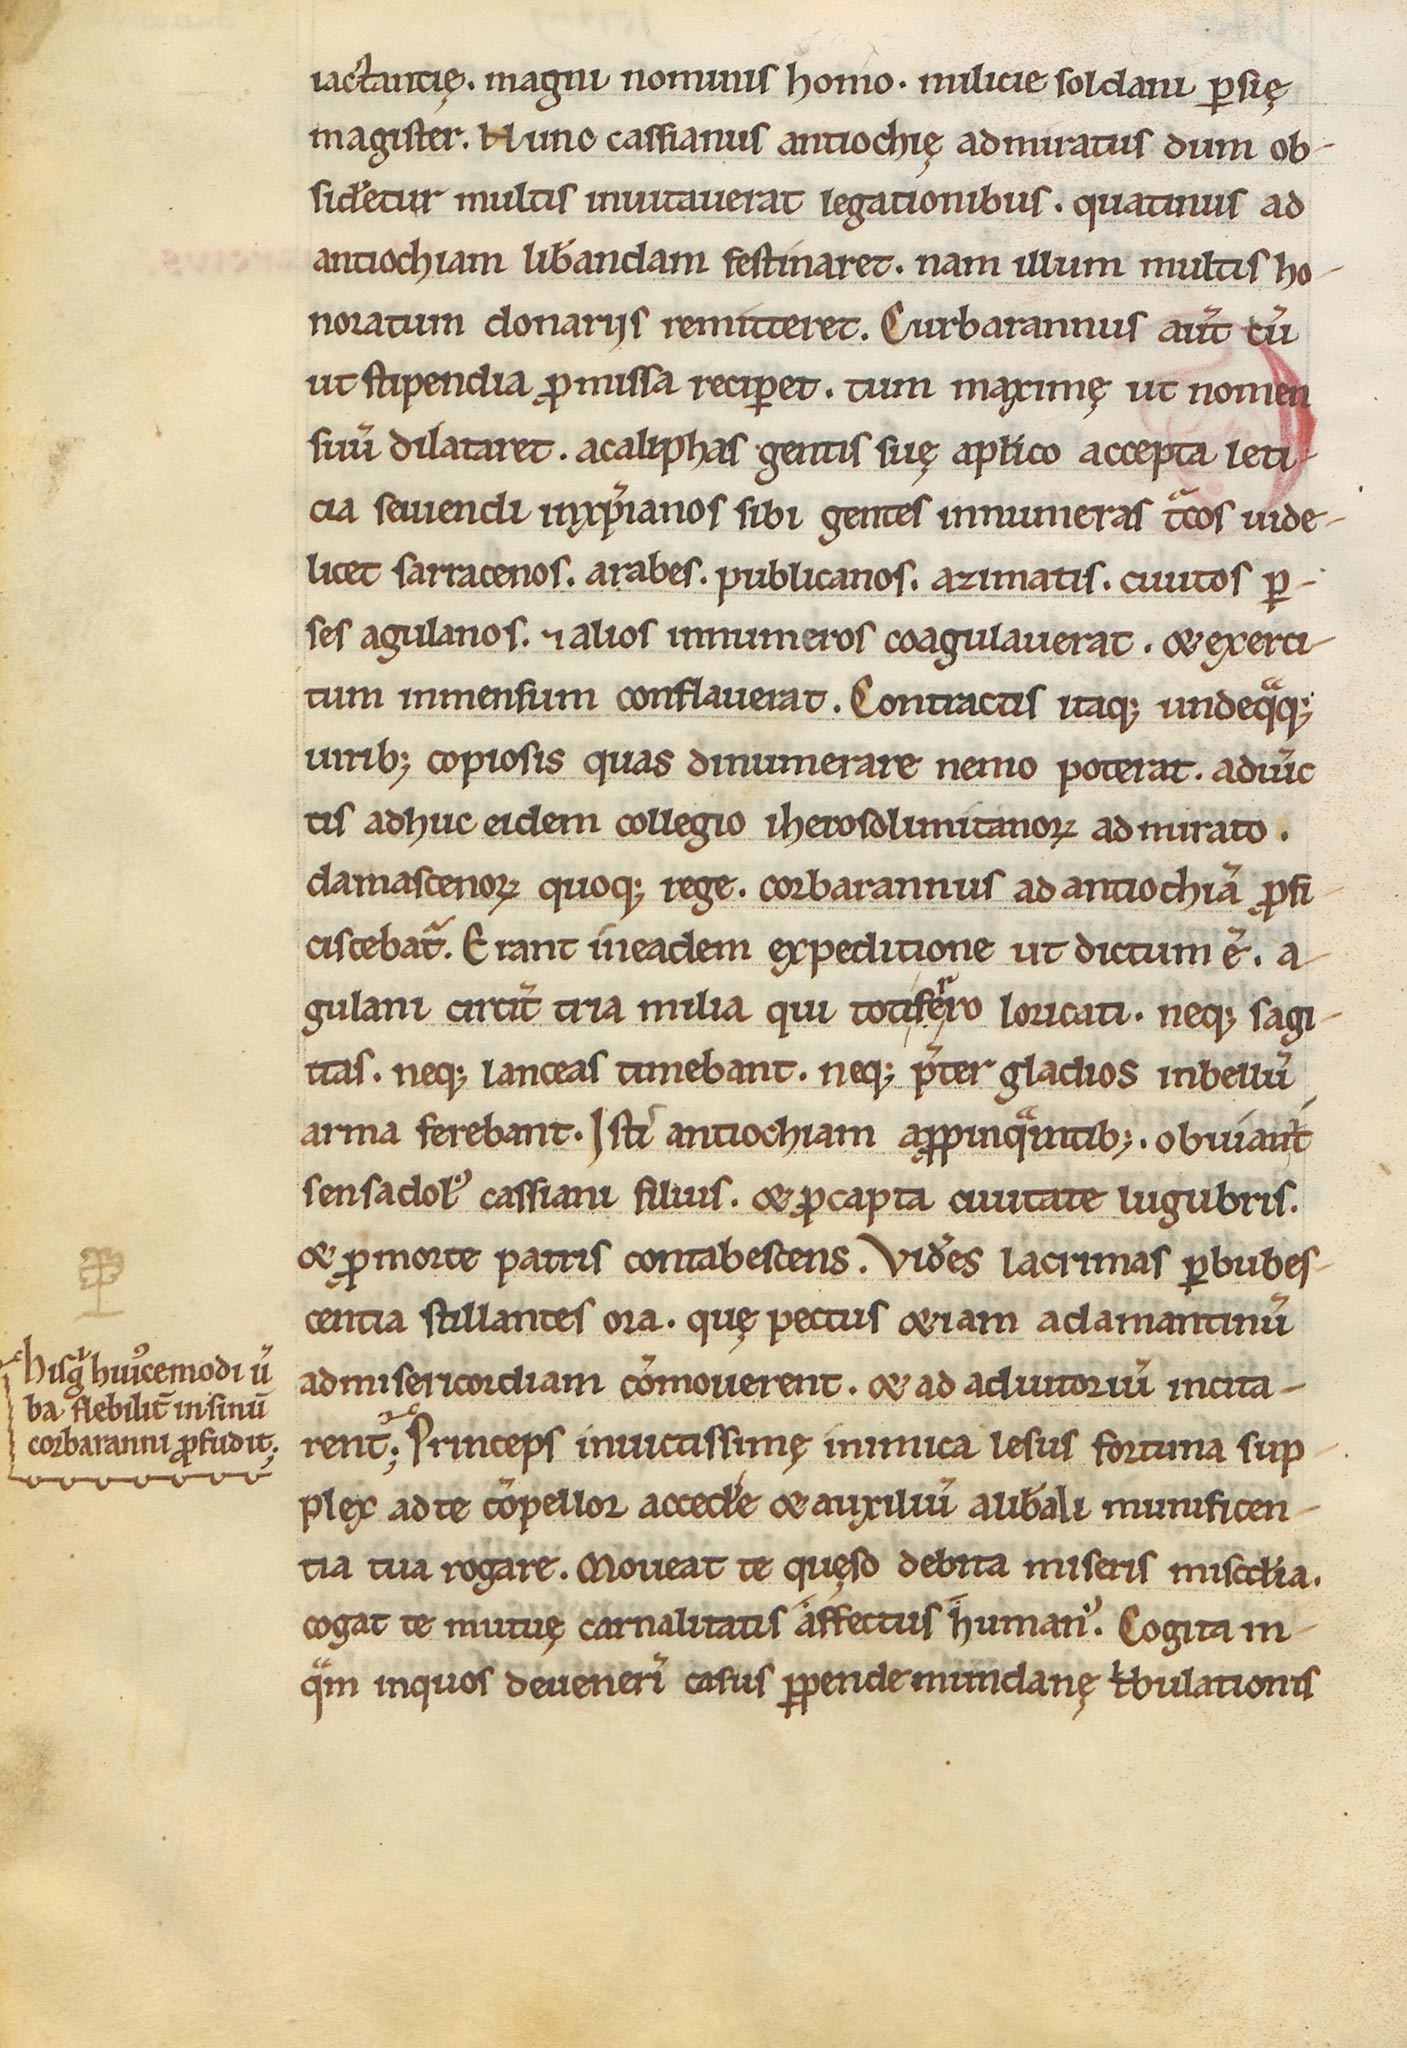 iactancię. magni nominis homo. milicie soldani ꝑsię
magister. Hunc cassianus antiochię admiratus dum ob-
sidetur multis inuitauerat legationibus. quatinus ad
antiochiam lib̃andam festinaret. nam illum multis ho-
noratum donariis remitteret. Curbarannus aut̃ cũ
ut stipendia ꝓmissa reciꝑet. tum maximę ut nomen
suũ dilataret. acaliphas gentis suę aplico accepta leti-
cia seuiendi inxp̃ianos sibi gentes innumeras tᵃcos uide-
licet sarracenos. arabes. publicanos. azimatis. cuutos ꝑ-
ses agulanos. ⁊ alios innumeros coagulauerat. & exerci-
tum inmensum conflauerat. Contractis itaq; undeqᵃq;
uirib; copiosis quas dinumerare nemo poterat. adiũc
tis adhuc eidem collegio iherosolimitanoꝝ admirato.
damascenoꝝ quoq; rege. corbarannus ad antiochiã ꝓfi-
ciscebat̃. Erant ineadem expeditione ut dictum ẽ. a-
gulani circit̃ tria milia qui toti ferro loricati. neq; sagi-
ttas. neq; lanceas timebant. neq; p̃ter gladios inbellũ
arma ferebant. Isti antiochiam aꝓpinqᵃntib;. obuiau͛t
sensadolꝰ cassiani filius. & ꝓcapta ciuitate lugubris.
& ꝓmorte patris contabescens. Vidẽs lacrimas ꝑbubes-
centia stillantes ora. quę pectus &iam adamantinũ
admisericordiam cõmouerent. & ad adiutoriũ incita-
rent; Princeps inuictissimę inimica lesus fortuna sup-
plex ad te cõpellor accedẽ & auxiliũ alib̃ali munificen-
tia tua rogare. Moueat te quęso debita miseris miscd̃ia.
cogat te mutuę carnalitatis affectus humanꝰ. Cogita in-
qᵃm inquos deuenerĩ casus ꝑpende mundanę tⁱbulationis
hisqꝫ huiꝰcemodi ũ
ba flebilit̃ insinũ
corbaranni ꝓfudit;